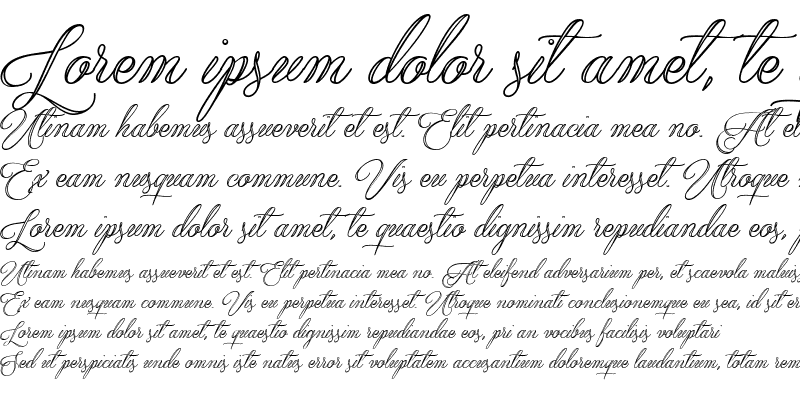 Lorem ipsum dolor sit amet, te
Utinam habemus assueverit et est. Elit pertinacia mea no. At
Ex eam nusquam commune. Vis eu perpetua interesset. Utroque
Lorem ipsum dolor sit amet, te quaestio dignissim repudiandae eos,
Utinam habemus assueverit et est. Elit pertinacia mea no. At eleifend adversarium per, et scaevola
Ex eam nusquam commune. Vis eu perpetua interesset. Utroque nominati conclusionemque eu sea, id sit
Lorem ipsum dolor sit amet, te quaestio dignissim repudiandae eos, pri an vocibus facilisis voluptari
Sed ut perspiciatis unde omnis iste natus error sit voluptatem accusantium doloremque laudantium, totam rem